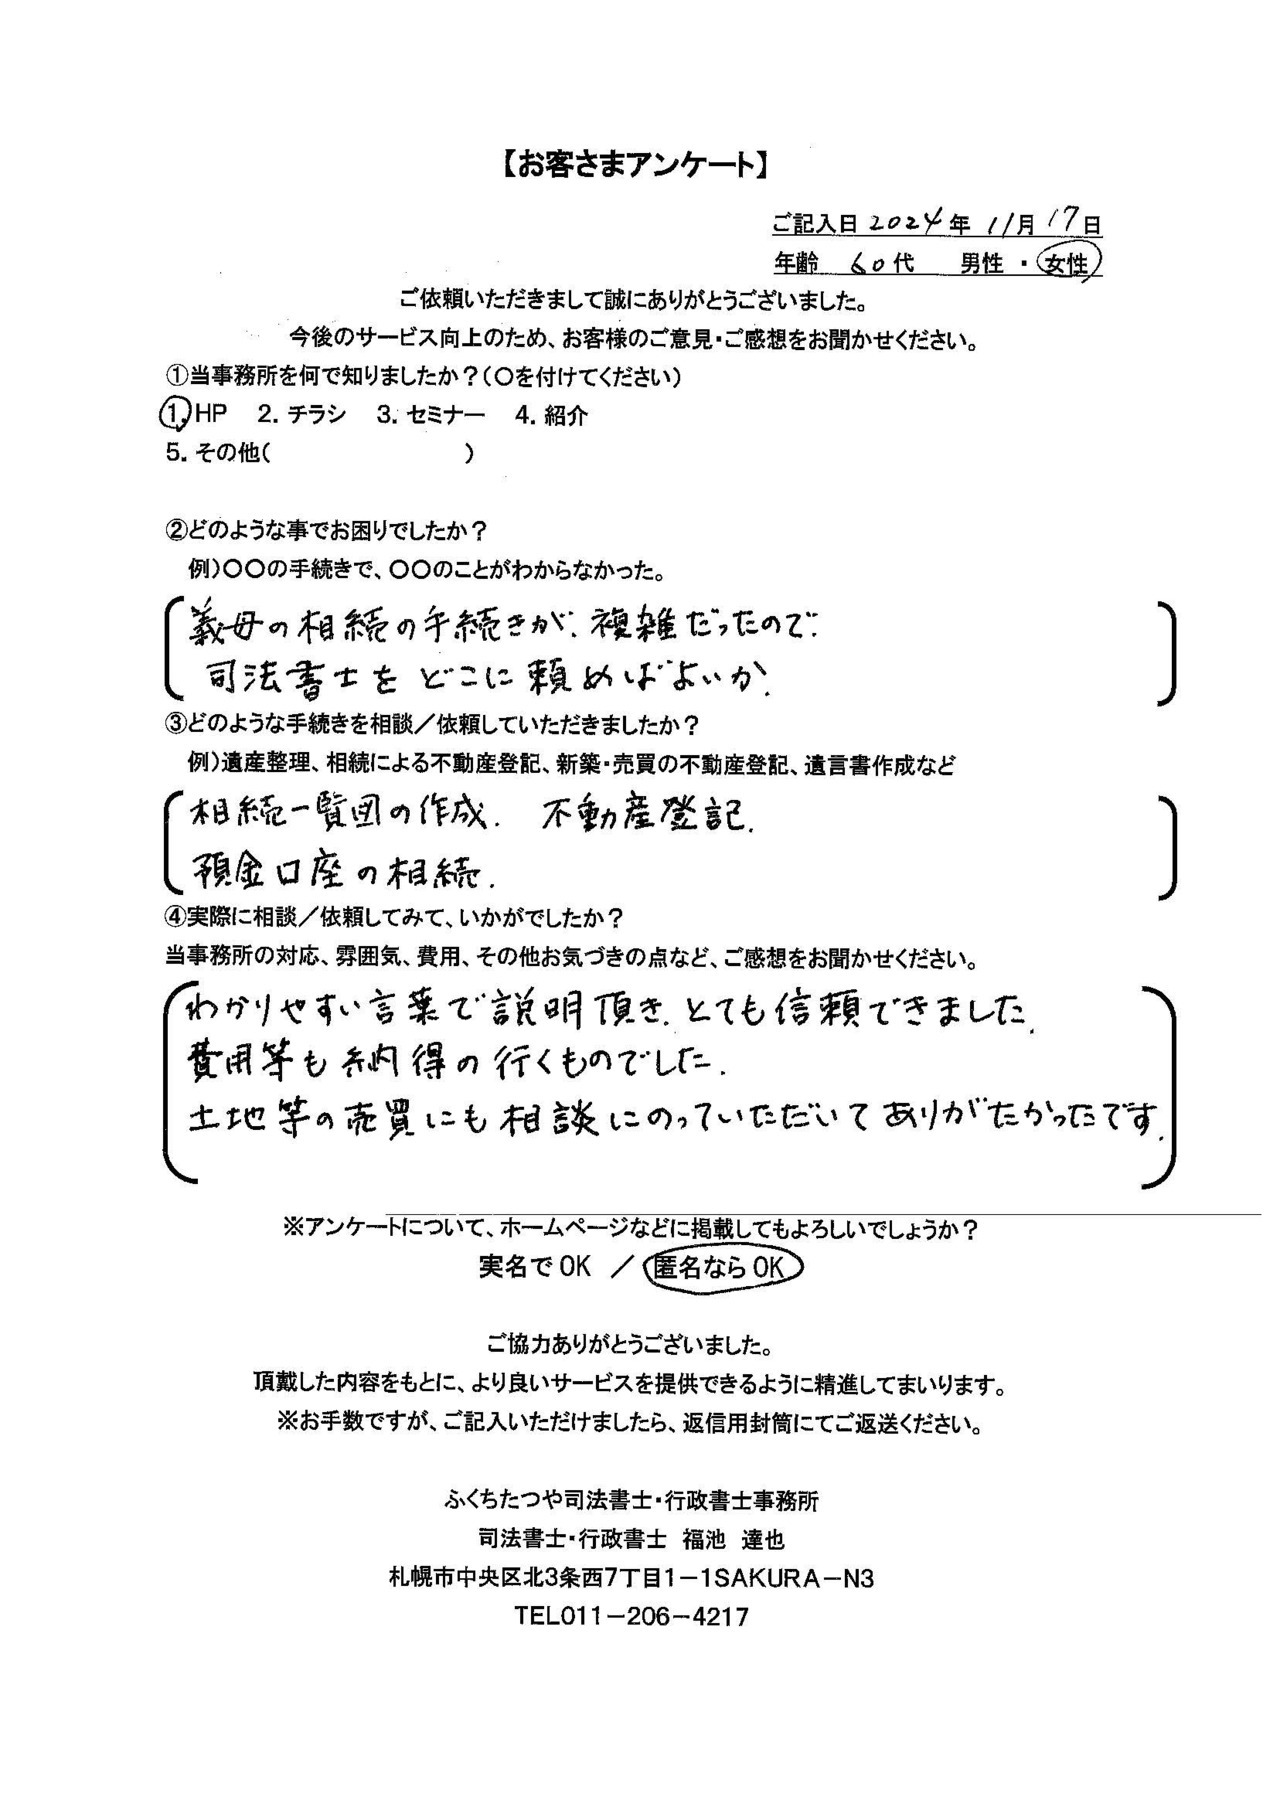 【お客さまアンケート】
ご記入日 2024年 11月 17日
年齢 60代 男性 ・ 女性
ご依頼いただきまして誠にありがとうございました。
今後のサービス向上のため、お客様のご意見・ご感想をお聞かせください。
①当事務所を何で知りましたか？(〇を付けてください)
1. HP 2. チラシ 3. セミナー 4. 紹介
5. その他( )
②どのような事でお困りでしたか？
例)〇〇の手続きで、〇〇のことがわからなかった。
義母の相続の手続きが、複雑だったので、
司法書士をどこに頼めばよいか、
③どのような手続きを相談／依頼していただきましたか？
例)遺産整理、相続による不動産登記、新築・売買の不動産登記、遺言書作成など
相続一覧図の作成. 不動産登記.
預金口座の相続.
④実際に相談／依頼してみて、いかがでしたか？
当事務所の対応、雰囲気、費用、その他お気づきの点など、ご感想をお聞かせください。
わかりやすい言葉で説明頂き、とても信頼できました.
費用等も納得の行くものでした.
土地等の売買にも相談にのっていただいてありがたかったです.
※アンケートについて、ホームページなどに掲載してもよろしいでしょうか？
実名でOK ／ 匿名ならOK
ご協力ありがとうございました。
頂戴した内容をもとに、より良いサービスを提供できるように精進してまいります。
※お手数ですが、ご記入いただけましたら、返信用封筒にてご返送ください。
ふくちたつや司法書士・行政書士事務所
司法書士・行政書士 福池 達也
札幌市中央区北3条西7丁目1－1SAKURA－N3
TEL011－206－4217